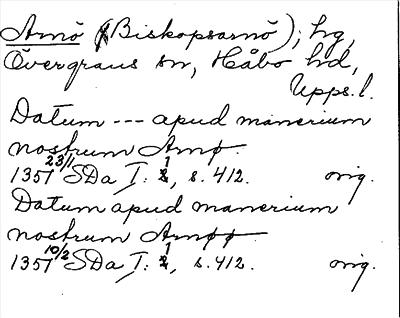 Arnö (Biskopsarnö); hg,
Övergrans sn, Håbo hd,
Upps. l.
Datum --- apud manerium
nostrum Arnø
1357 23/1 SDa I: 1, s. 412. orig.
Datum apud manerium
nostrum Arnøø
1357 10/2 SDa I: 1, s. 412. orig.